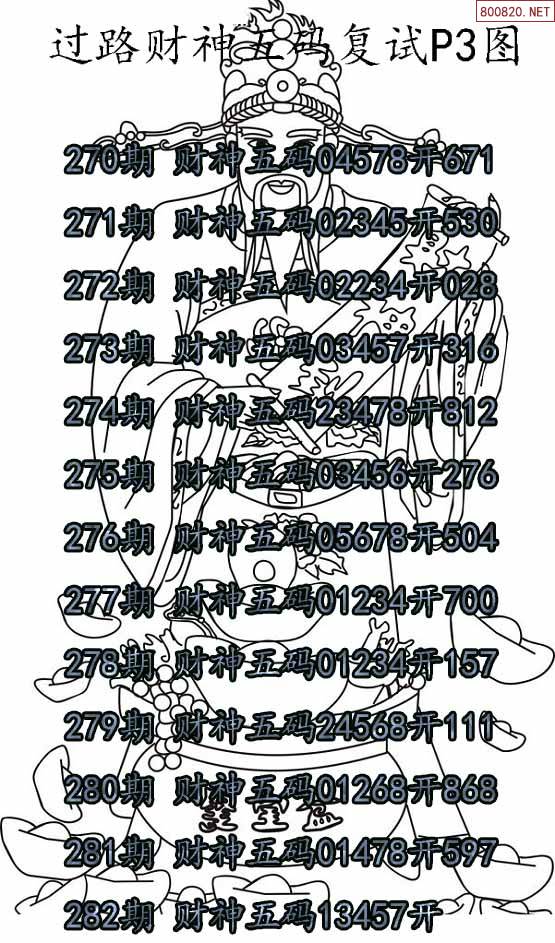 800820.NET
过路财神五码复试P3图
270期 财神五码04578开671
271期 财神五码02345开530
272期 财神五码02234开028
273期 财神五码03457开316
274期 财神五码23478开812
275期 财神五码03456开276
276期 财神五码05678开504
277期 财神五码01234开700
278期 财神五码01234开157
279期 财神五码24568开111
280期 财神五码01268开868
281期 财神五码01478开597
282期 财神五码13457开